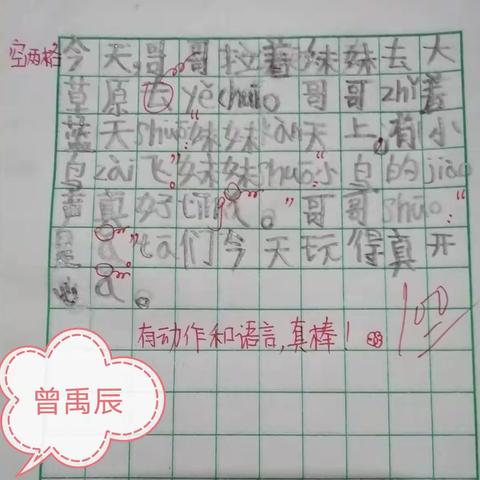 空两格
今天,哥哥拉着妹妹去大
草原去yěchuīo。哥哥zhǐ着
蓝天shuō:"妹妹kàn天上,有小
鸟zài飞。"妹妹shuō:"小鸟的jiào
声真好tīng a。"哥哥shuō:"
是a"tā们今天玩得真开
心a。
有动作和语言,真棒!
100
曾禹辰